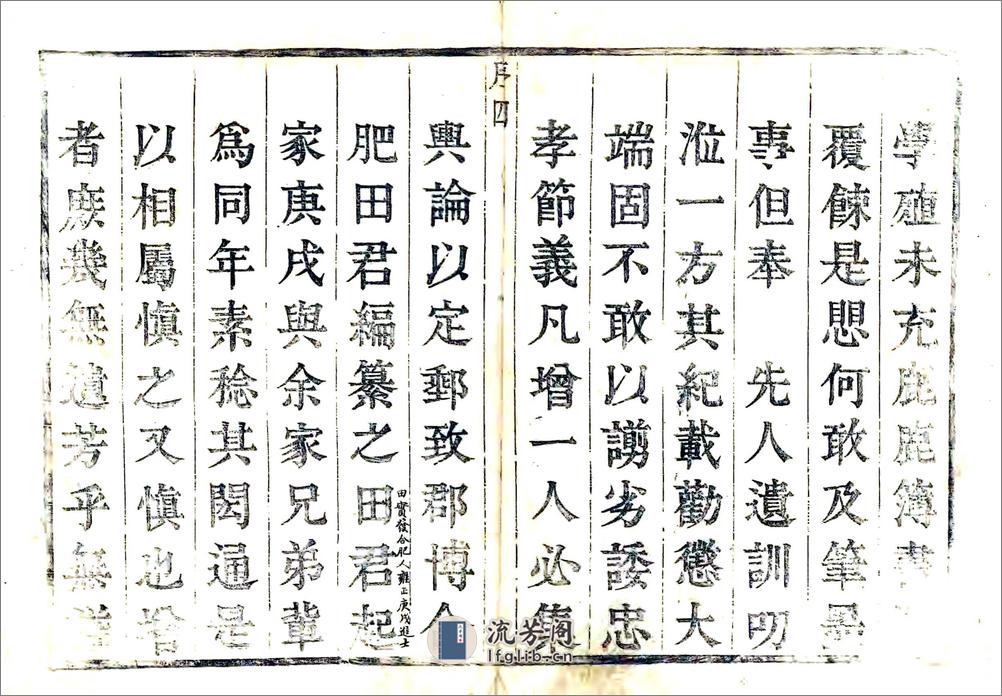 學殖未充鹿鹿簿書
覆餗是思何敢及筆墨
事但奉 先人遺訓叨
涖一方其紀載勸懲大
端固不敢以謭劣諉忠
孝節義凡增一人必集
序 四
輿論以定郵致郡博合
肥田君編纂之田君起
田實發合肥人雍正庚戌進士
家庚戌與余家兄弟輩
爲同年素稔其閎通是
以相屬愼之又愼也
者庶幾無遺芳乎無
流芳阁
lfglib.cn